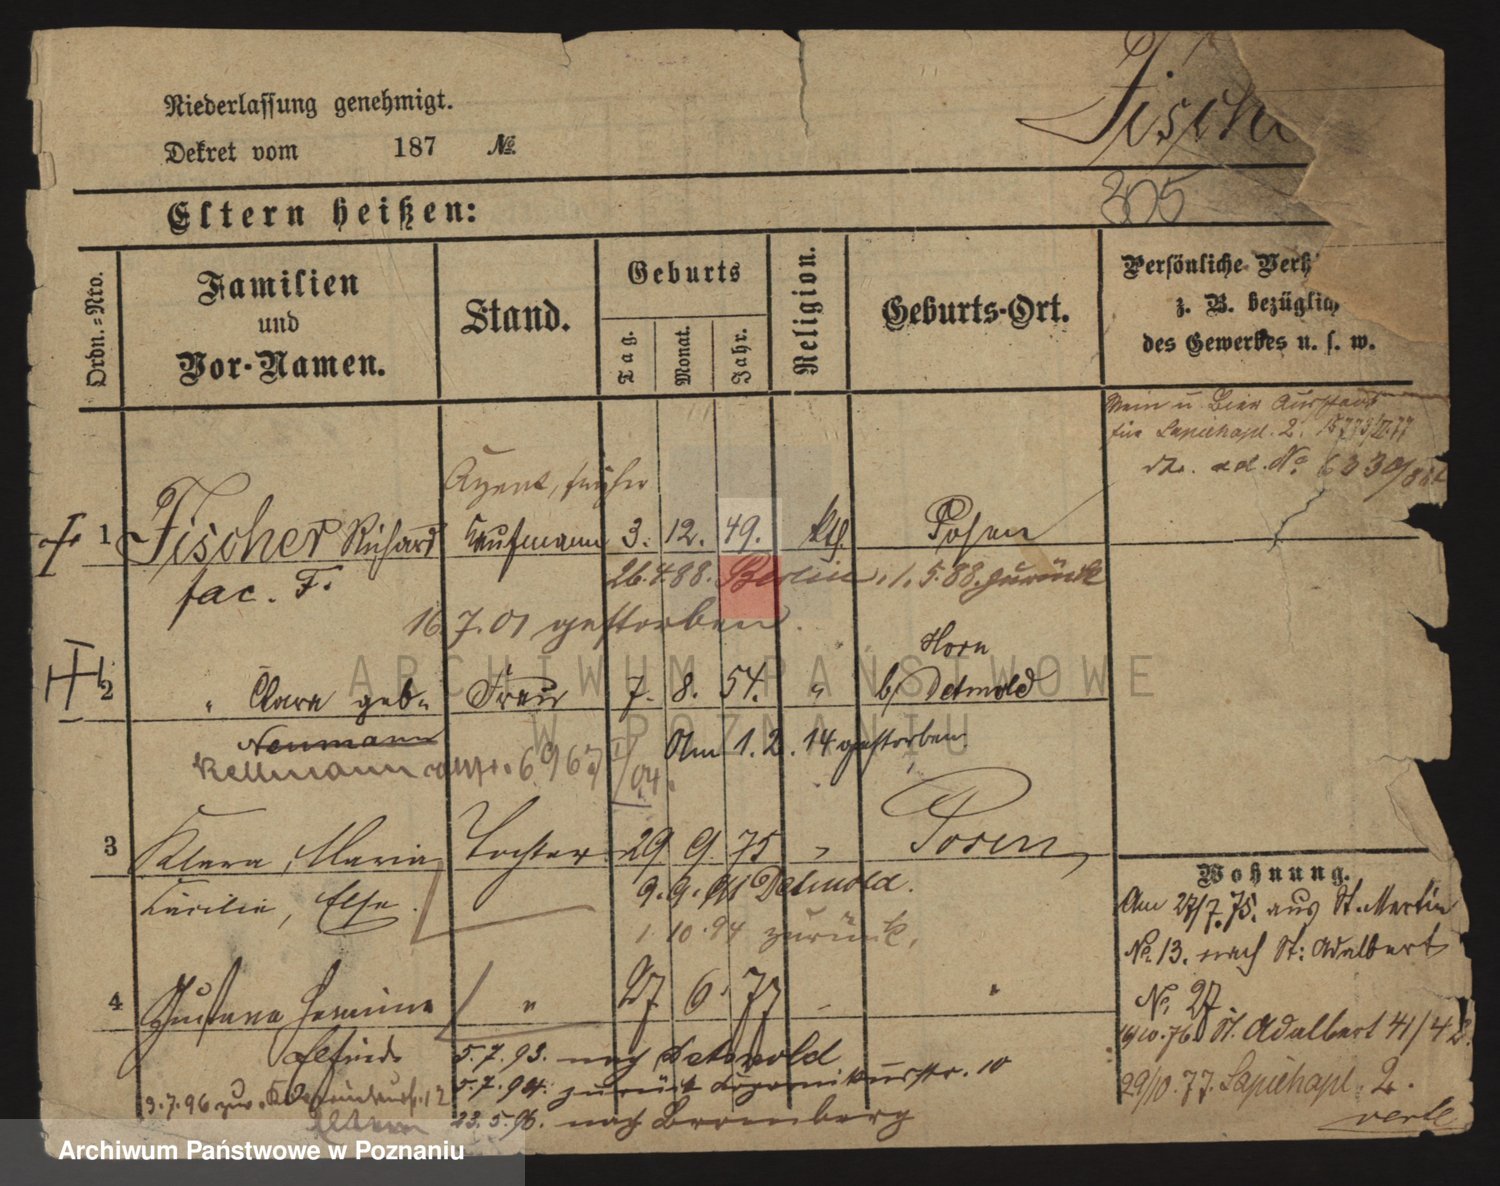 Niederlassung genehmigt.
Dekret vom 187 №
Fische
305
Eltern heißen:
Ordn.=Nro.
Familien
und
Vor-Namen.
Stand.
Geburts
Tag.
Monat.
Jahr.
Religion.
Geburts-Ort.
Persönliche Verh
z. B. bezüglich
des Gewerbes u. s. w.
Wein u Bier Ausschank
für Sapiehapl. 2.
No 6330/
Agent, früher
1 Fischer Richard Kaufmann 3. 12. 49. kth. Posen
fac. F.
26.4.88. Berlin, 1.5.88. zurück
16.7.01 gestorben.
Horn
2 " Clara geb. Frau 7. 8. 54. " b/ Detmold
Neumann
Kellmann 6967
Am 1.2.14 gestorben.
3 Klara, Maria, Tochter 29 9. 75 " Posen
Cäcilie, Else.
9.9. Detmold.
1.10.94 zurück,
4 Gustava Hermine " 27 6. 77 "
Elfriede
5.7.93. nach Detmold
5.7.94. zurück 10
3.7.96
Eltern
23.5.96. nach Bromberg
Wohnung.
Am 27/7.75. aus St. Martin
No. 13. nach St. Adalbert
No. 27.
St. Adalbert 41/42.
29/10.77. Sapiehapl. 2.
verte
ARCHIWUM PAŃSTWOWE
W POZNANIU
Archiwum Państwowe w Poznaniu